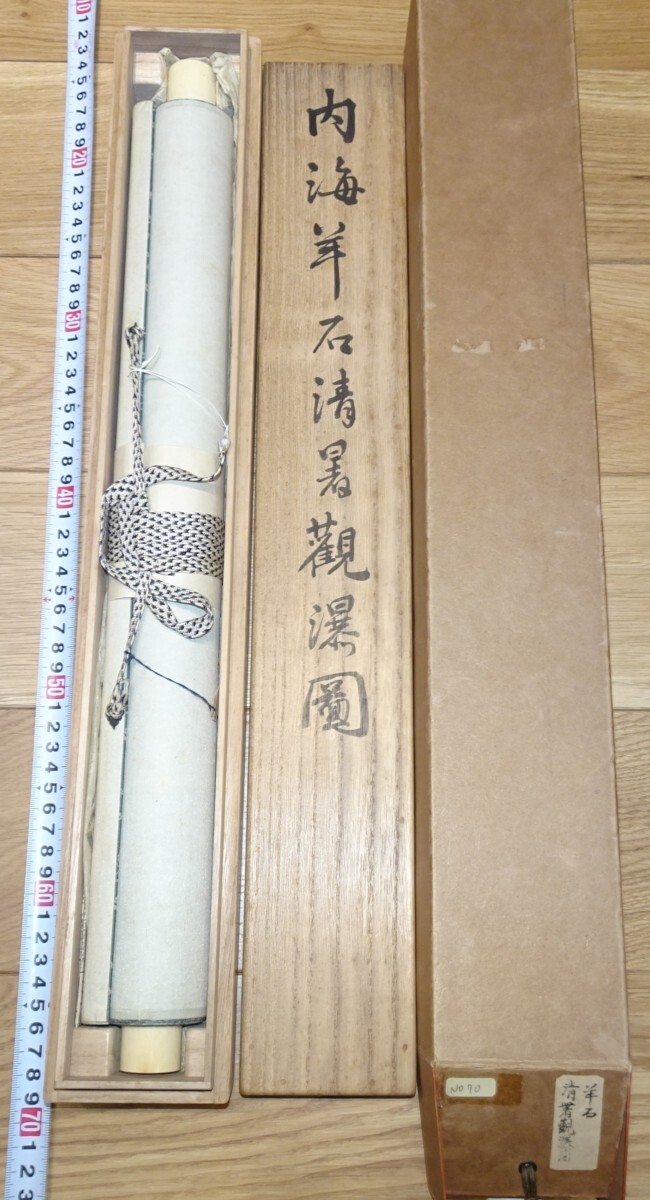 内海羊石清暑觀瀑圖
NO.70
羊石
清暑觀瀑圖
10
1 2 3 4 5 6 7 8 9 20 1 2 3 4 5 6 7 8 9 30 1 2 3 4 5 6 7 8 9 40 1 2 3 4 5 6 7 8 9 50 1 2 3 4 5 6 7 8 9 60 1 2 3 4 5 6 7 8 9 70 1 2 3